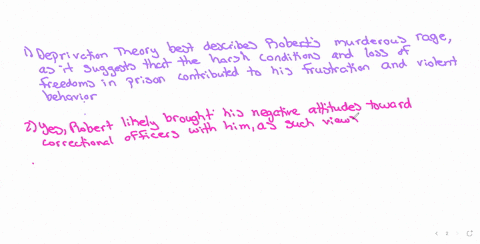 1) Deprivation Theory best describes Robert's murderous rage,
as it suggests that the harsh conditions and loss of
freedoms in prison contributed to his frustration and violent
behavior
2) Yes, Robert likely brought his negative attitudes toward
correctional officers with him, as such views